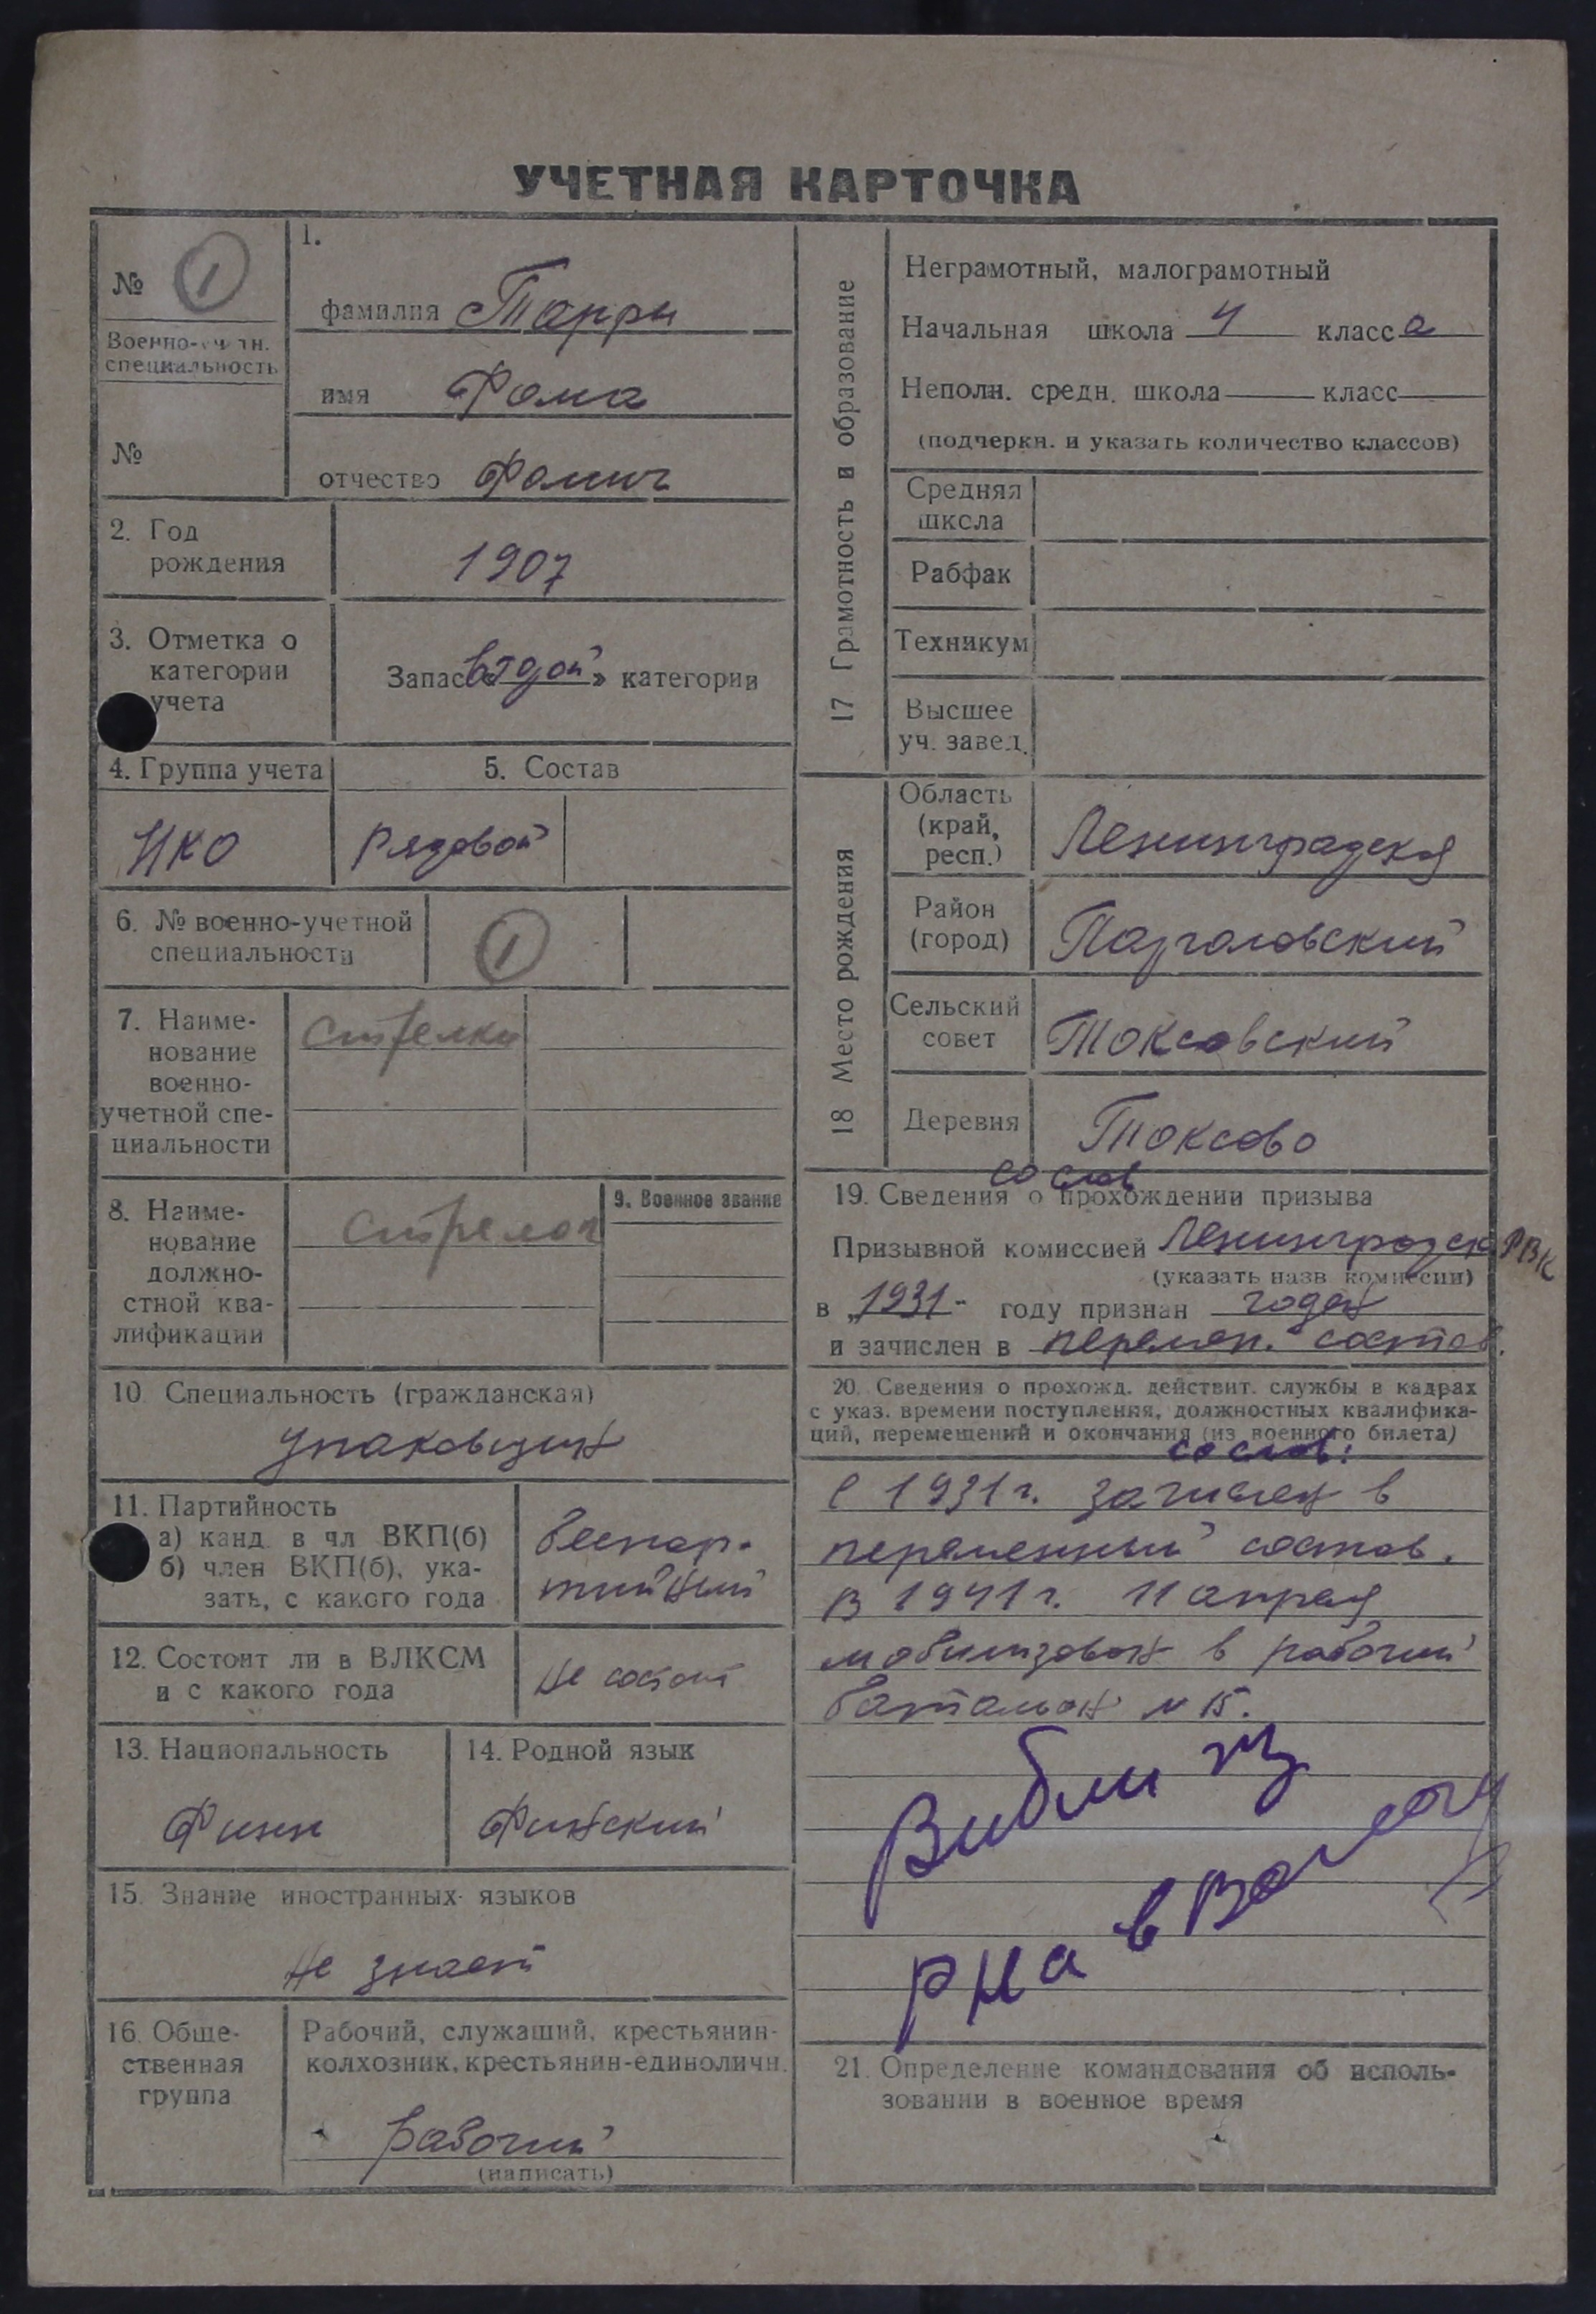 УЧЕТНАЯ КАРТОЧКА
№ 1
Военно-учетн.
специальность
№
1.
фамилия Тарри
имя Фома
отчество Фомич
2. Год
рождения
1907
3. Отметка о
категории
учета
Запас «втрой» категории
4. Группа учета
НКО
5. Состав
Рядовой
6. № военно-учетной
специальности
1
7. Наиме-
нование
военно-
учетной спе-
циальности
стрелки
8. Наиме-
нование
должно-
стной ква-
лификации
стрелок
9. Военное звание
10 Специальность (гражданская)
упаковщик
11. Партийность
а) канд в чл ВКП(б)
б) член ВКП(б), ука-
зать, с какого года
беспар-
тийный
12. Состоит ли в ВЛКСМ
и с какого года
не состоит
13. Национальность
Финн
14. Родной язык
Финский
15. Знание иностранных языков
не знает
16. Обще-
ственная
группа
Рабочий, служащий, крестьянин-
колхозник, крестьянин-единоличн.
рабочий
(написать)
17 Грамотность и образование
Неграмотный, малограмотный
Начальная школа 4 класса
Неполн. средн. школа класс
(подчеркн. и указать количество классов)
Средняя
школа
Рабфак
Техникум
Высшее
уч. завед.
18 Место рождения
Область
(край,
респ.)
Ленинградская
Район
(город)
Парголовский
Сельский
совет
Токсовский
Деревня
Токсово
со слов
19. Сведения о прохождении призыва
Призывной комиссией Ленинградск РВК
(указать назв комиссии)
в 1931- году признан годен
и зачислен в перемен. состав.
20. Сведения о прохожд. действит. службы в кадрах
с указ. времени поступления, должностных квалифика-
ций, перемещений и окончания (из военного билета)
со слов:
с 1931 г. зачислен в
переменный состав.
в 1941 г. 11 апреля
мобилизован в рабочий
батальон № 15.
в
21. Определение командования об исполь-
зовании в военное время